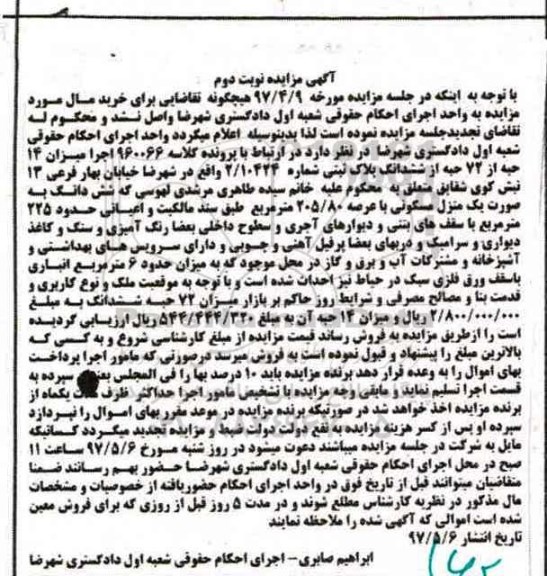 آگهی مزایده نوبت دوم
با توجه به اینکه در جلسه مزایده مورخه ۹۷/۴/۹ هیچگونه تقاضایی برای خرید مال مورد
مزایده به واحد اجرای احکام حقوقی شعبه اول دادگستری شهرضا واصل نشد و محکوم له
تقاضای تجدیدجلسه مزایده نموده است لذا بدینوسیله اعلام میگردد واحد اجرای احکام حقوقی
شعبه اول دادگستری شهرضا در نظر دارد در ارتباط با پرونده کلاسه ۹۶۰۰۶۶ اجرا میزان ۱۴
حبه از ۷۲ حبه از ششدانگ پلاک ثبتی شماره ۲/۱۰۴۲۴ واقع در شهرضا خیابان بهار فرعی ۱۳
نبش کوی شقایق متعلق به محکوم علیه خانم سیده طاهری مرشدی لهوسی که شش دانگ به
صورت یک منزل مسکونی با عرصه ۲۰۵/۸۰ مترمربع طبق سند مالکیت و اعیانی حدود ۲۲۵
مترمربع با سقف های بتنی و دیوارهای آجری و سطوح داخلی بعضا رنگ آمیزی و سنگ و کاغذ
دیواری و سرامیک و دربهای بعضا پرفیل آهنی و چوبی و دارای سرویس های بهداشتی و
آشپزخانه و مشترکات آب و برق و گاز در محل موجود که به میزان حدود ۶ مترمربع انباری
باسقف ورق فلزی سبک در حیاط نیز احداث شده است و با توجه به موقعیت ملک و نوع کاربری و
قدمت بنا و مصالح مصرفی و شرایط روز حاکم بر بازار میزان ۷۲ حبه ششدانگ به مبلغ
۲/۸۰۰/۰۰۰/۰۰۰ ریال و میزان ۱۴ حبه آن به مبلغ ۵۴۴/۴۴۴/۳۲۰ ریال ارزیابی گردیده
است را ازطریق مزایده به فروش رساند قیمت مزایده از مبلغ کارشناسی شروع و به کسی که
بالاترین مبلغ را پیشنهاد و قبول نموده است به فروش میرسد درصورتی که مامور اجرا پرداخت
بهای اموال را به وعده قرار دهد برنده مزایده باید ۱۰ درصد بها را فی المجلس سپرده به
قسمت اجرا تسلیم نماید . مابقی وجه مزایده با تشخیص مامور اجرا حداکثر ظرف مدت یکماه از
برنده مزایده اخذ خواهد شد در صورتیکه برنده مزایده در موعد مقرر بهای اموال را نپردازد
سپرده او پس از کسر هزینه مزایده به نفع دولت دولت ضبط و مزایده تجدید میگردد کسانیکه
مایل به شرکت در جلسه مزایده میباشند دعوت میشود در روز شنبه مورخ ۹۷/۵/۶ ساعت ۱۱
صبح در محل اجرای احکام حقوقی شعبه اول دادگستری شهرضا حضور بهم رسانند ضمنا
متقاضیان میتوانند قبل از تاریخ فوق در واحد اجرای احکام حضوریافته از خصوصیات و مشخصات
مال مذکور در نظریه کارشناس مطلع شوند و در مدت ۵ روز قبل از روزی که برای فروش معین
شده است اموالی که آگهی شده را ملاحظه نمایند
تاریخ انتشار ۹۷/۵/۶
ابراهیم صابری- اجرای احکام حقوقی شعبه اول دادگستری شهرضا